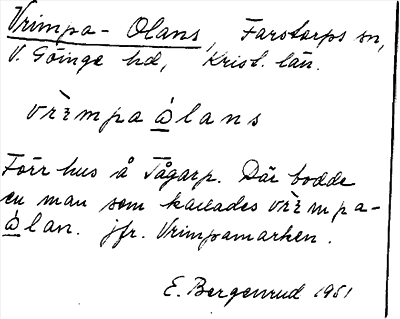 Vrimpa-Olans, Farstorps sn,
V. Göinge hd, Krist. län.
vrìmpa å̀lans
Förr hus å Tågarp. Där bodde
en man som kallades vrìmpa-
å̀lan. jfr. Vrimpamarken.
E. Bergenrud 1951